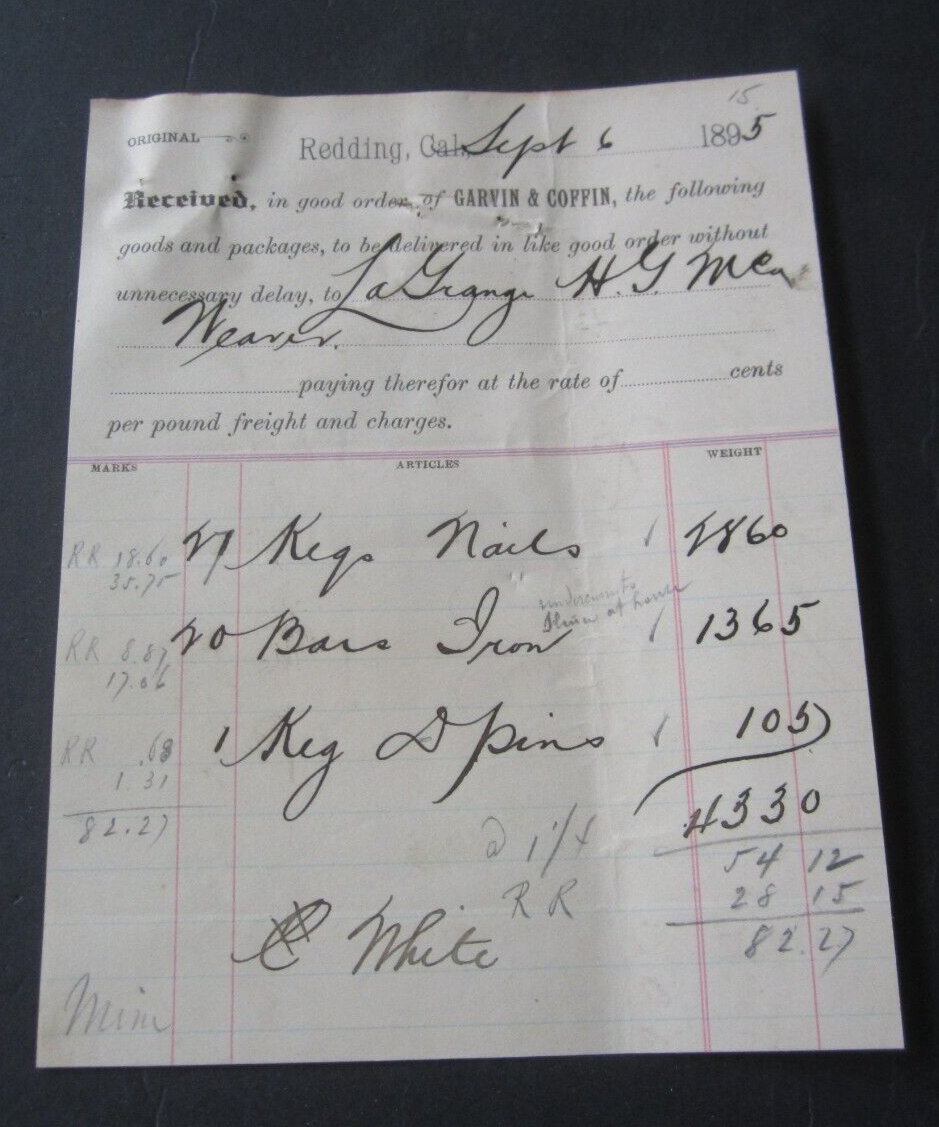 15
ORIGINAL
Redding, Cal., Sept 6 1895
Received, in good order of GARVIN & COFFIN, the following
goods and packages, to be delivered in like good order without
unnecessary delay, to La Grange H. G. M Co
Weaver.
paying therefor at the rate of cents
per pound freight and charges.
MARKS ARTICLES WEIGHT
RR 18.60 27 Kegs Nails 2860
35.75
at house
RR 8.87 20 Bars Iron 1365
17.06
RR .68 1 Keg D pins 105
1.31
82.27 4330
@ 1 1/4 54 12
RR 28 15
White 82.27
Mine